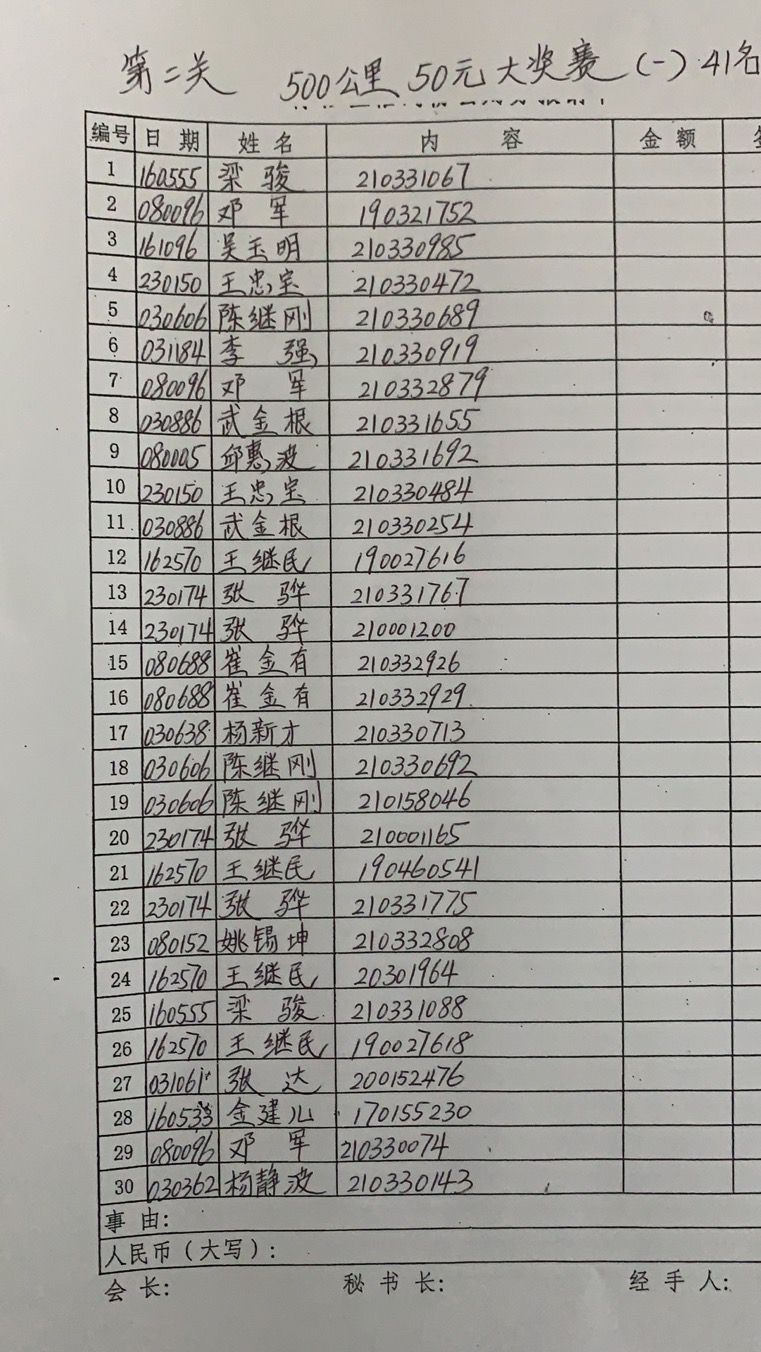 第二关 500公里 50元大奖赛 (一) 41名
编号 日期 姓名 内容 金额
1 160555 梁骏 210331067
2 080096 邓军 190321752
3 161096 吴玉明 210330985
4 230150 王忠宝 210330472
5 030606 陈继刚 210330689
6 031184 李强 210330919
7 080096 邓军 210332879
8 030886 武金根 210331655
9 080005 邱惠波 210331692
10 230150 王忠宝 210330484
11 030886 武金根 210330254
12 162570 王继民 190027616
13 230174 张骅 210331767
14 230174 张骅 210001200
15 080688 崔金有 210332926
16 080688 崔金有 210332929
17 030638 杨新才 210330713
18 030606 陈继刚 210330692
19 030606 陈继刚 210158046
20 230174 张骅 210001165
21 162570 王继民 190460541
22 230174 张骅 210331775
23 080152 姚锡坤 210332808
24 162570 王继民 20301964
25 160555 梁骏 210331088
26 162570 王继民 190027618
27 031061 张达 200152476
28 160533 金建儿 170155230
29 080096 邓军 210330074
30 030362 杨静波 210330143
事由:
人民币(大写):
会长: 秘书长: 经手人: